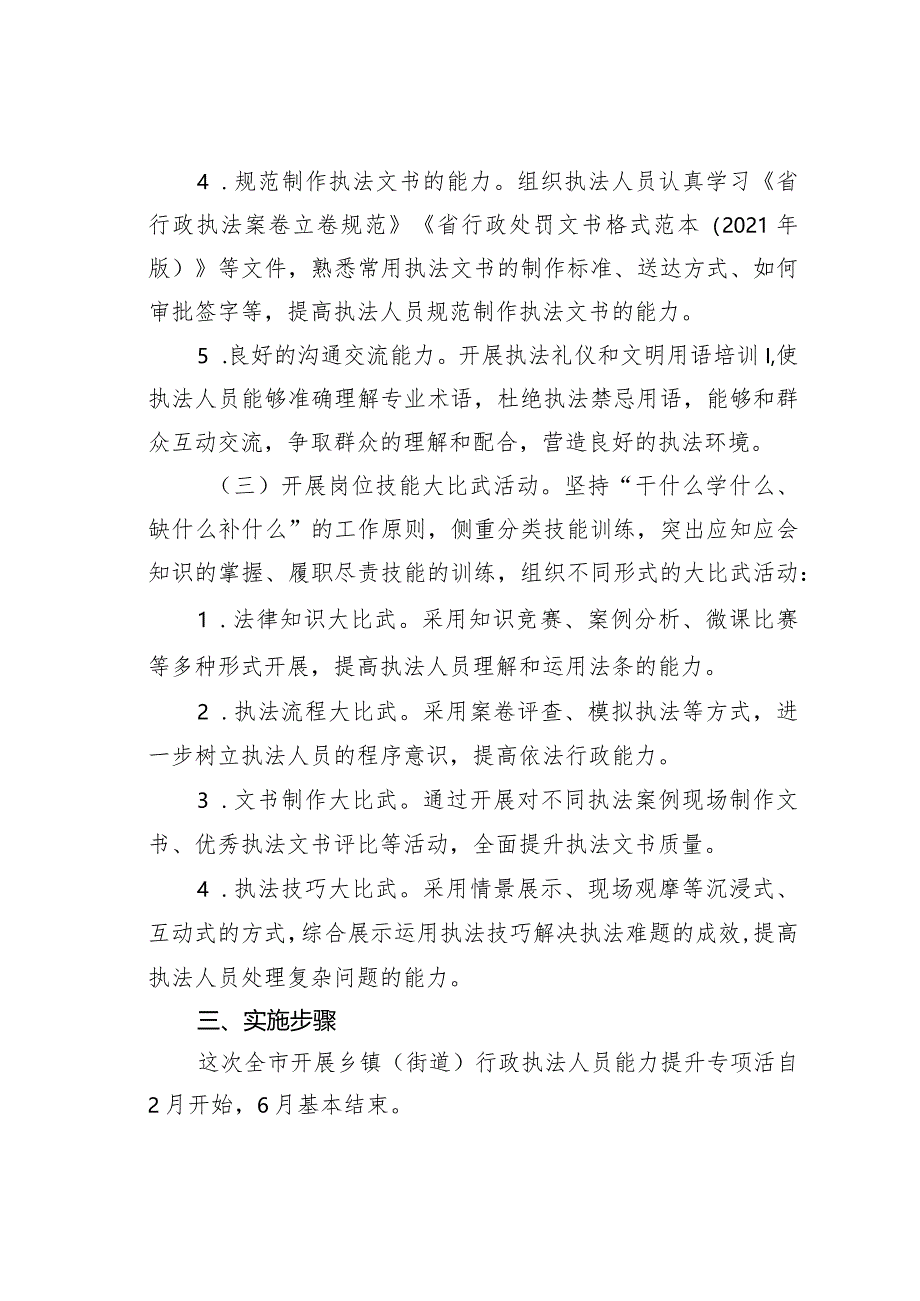 4 .规范制作执法文书的能力。组织执法人员认真学习《省
行政执法案卷立卷规范》《省行政处罚文书格式范本（2021 年
版）》等文件，熟悉常用执法文书的制作标准、送达方式、如何
审批签字等，提高执法人员规范制作执法文书的能力。
5 .良好的沟通交流能力。开展执法礼仪和文明用语培训 I,使
执法人员能够准确理解专业术语，杜绝执法禁忌用语，能够和群
众互动交流，争取群众的理解和配合，营造良好的执法环境。
（三）开展岗位技能大比武活动。坚持“干什么学什么、
缺什么补什么”的工作原则，侧重分类技能训练，突出应知应会
知识的掌握、履职尽责技能的训练，组织不同形式的大比武活动：
1 .法律知识大比武。采用知识竞赛、案例分析、微课比赛
等多种形式开展，提高执法人员理解和运用法条的能力。
2 .执法流程大比武。采用案卷评查、模拟执法等方式，进
一步树立执法人员的程序意识，提高依法行政能力。
3 .文书制作大比武。通过开展对不同执法案例现场制作文
书、优秀执法文书评比等活动，全面提升执法文书质量。
4 .执法技巧大比武。采用情景展示、现场观摩等沉浸式、
互动式的方式,综合展示运用执法技巧解决执法难题的成效,提高
执法人员处理复杂问题的能力。
三、实施步骤
这次全市开展乡镇（街道）行政执法人员能力提升专项活自
2 月开始，6 月基本结束。